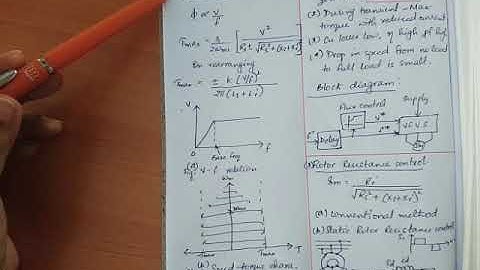 φ ∝ V/f
Tmax = 3/2ωms [ V² / Rs ± √Rs² + (Xs+Xr')² ]
On rearranging
Tmax = ± K (V/f)² / 2π (Ls + Lr')
V
0
Base freq
f
(a) V-f relation
ωm
Tmax
Tmax
T
(b) Speed-torque chara.
(2) During transient - Max
torque with reduced current
(3) Cu losses low, η high pf high
(4) Drop in speed from no load
to full load is small.
Block diagram:
Flux control
Supply
V*
f*
Delay
V.F.V.S
IM
(3) Rotor Resistance control
Sm = Rr' / √Rs² + (Xs+Xr')²
(a) Conventional method
(b) Static Rotor Resistance control